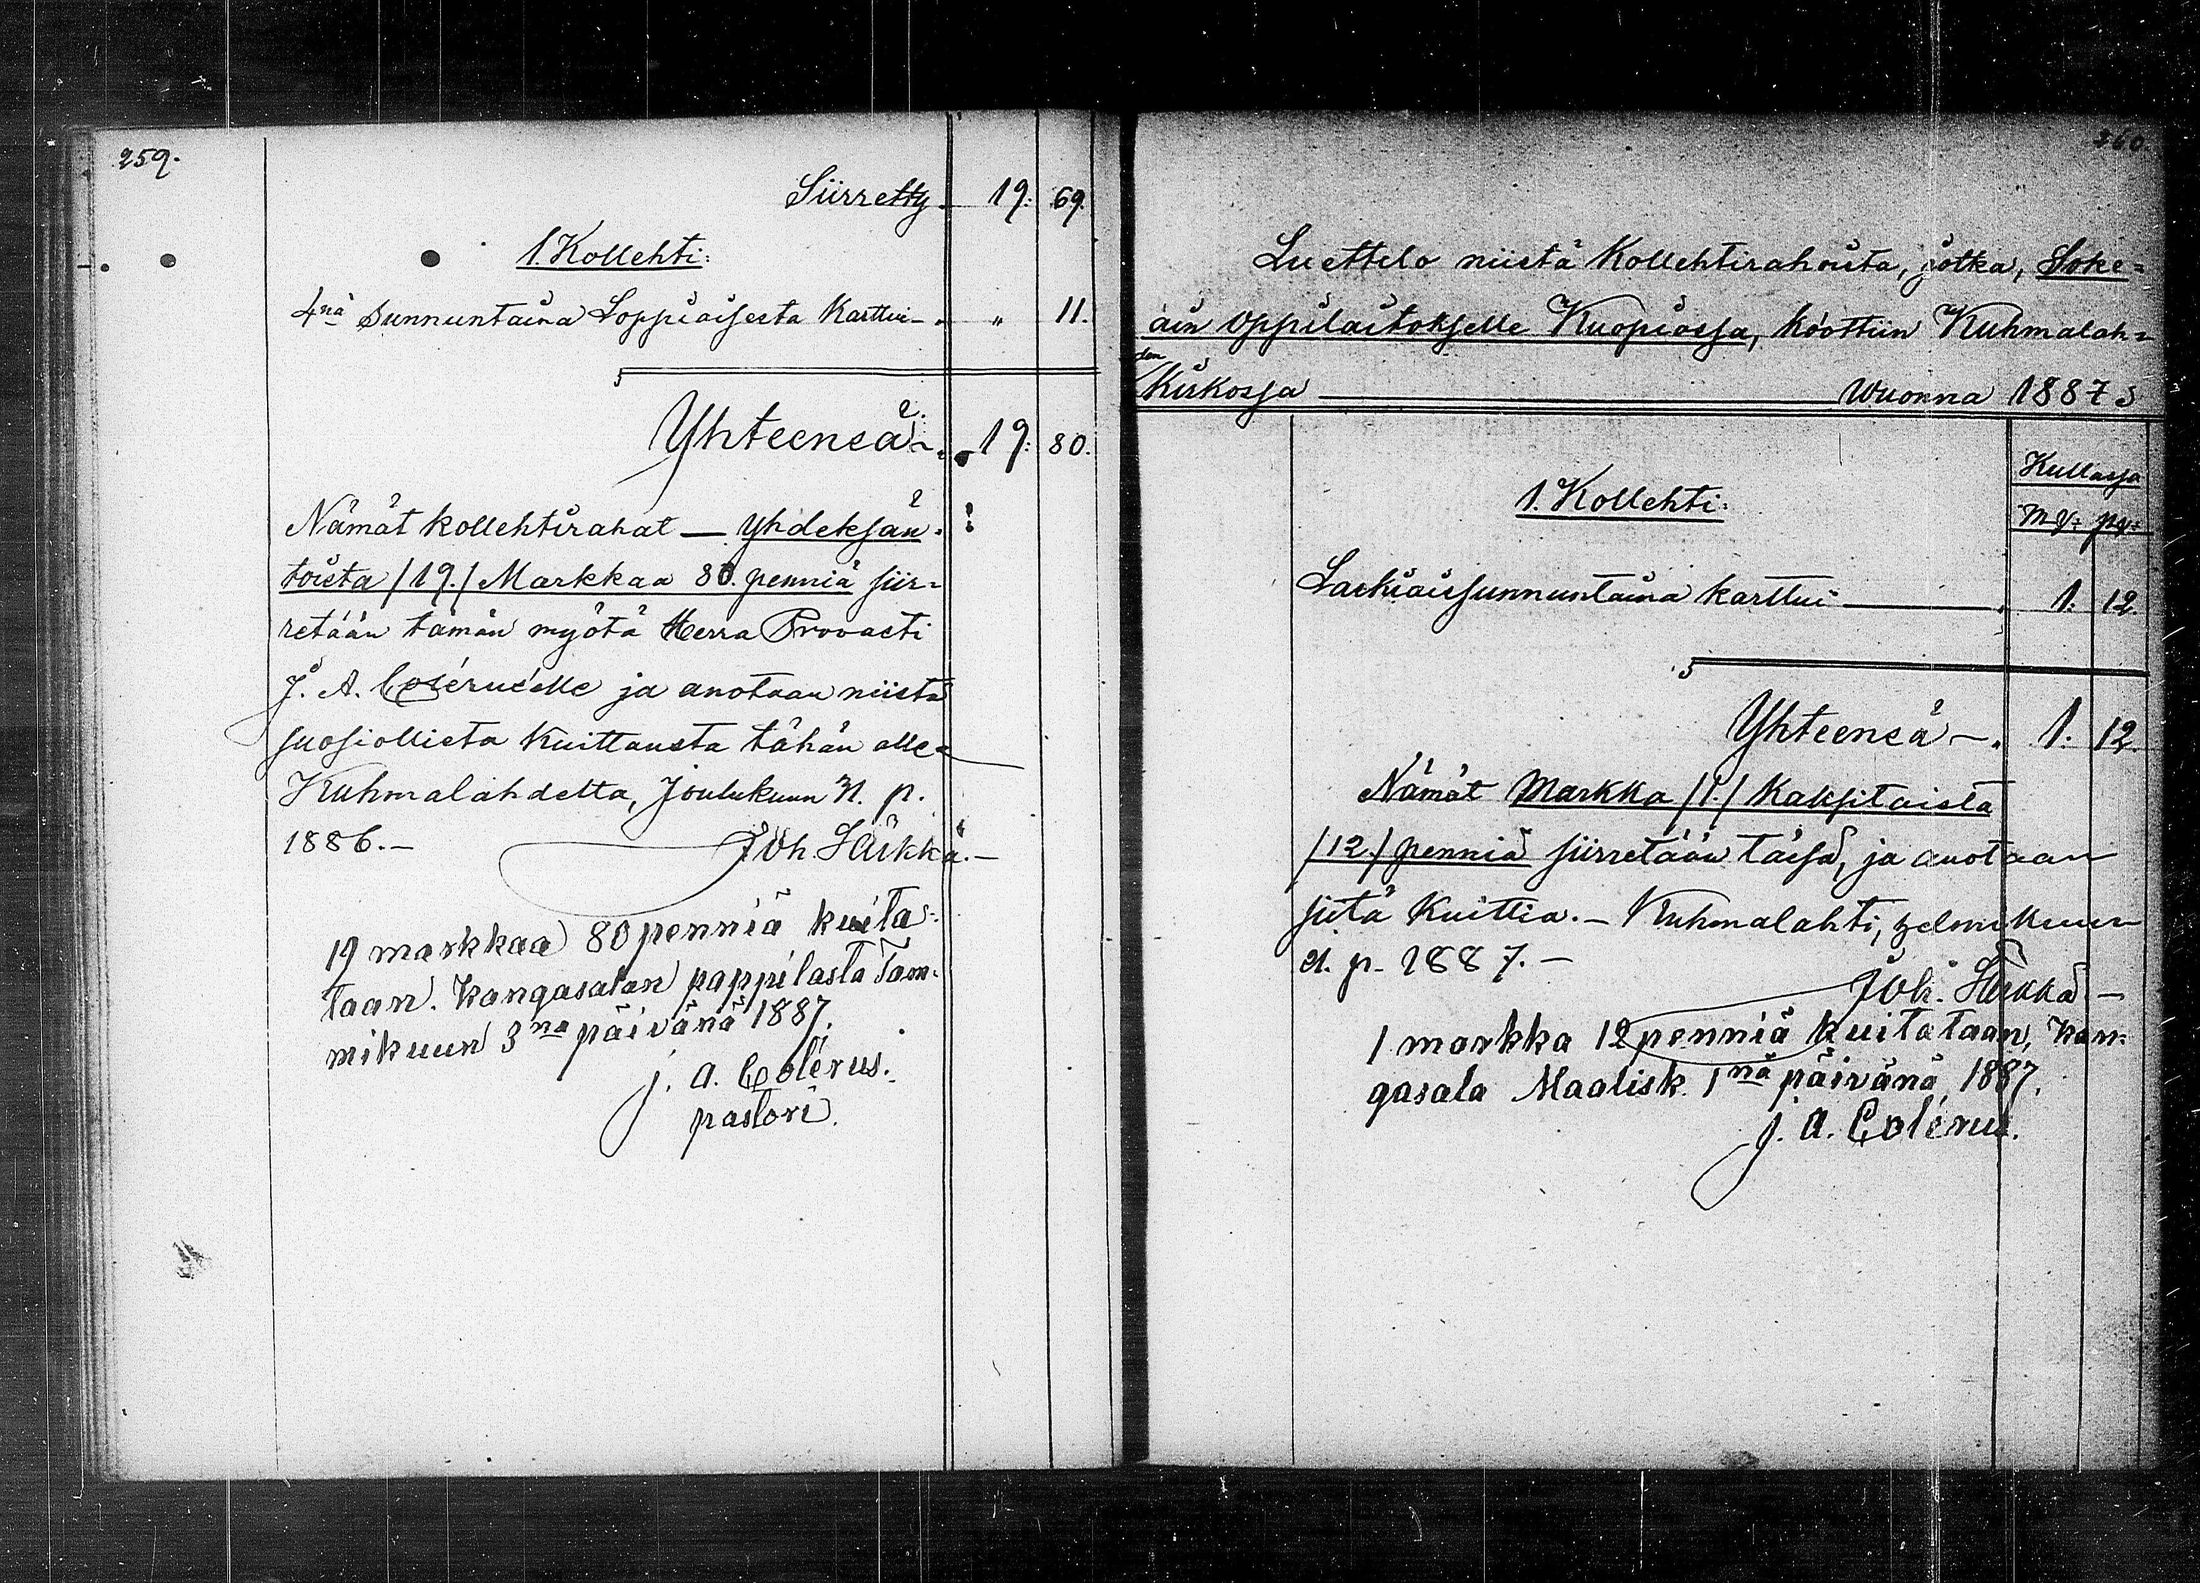 259.
Siirretty. 19. 69.
1. Kollehti:
4nä Sunnuntaina Loppiaisesta Karttui –. " 11.
Yhteensä –. 19. 80.
Nämät kollehtirahat — Yhdeksän-
toista /19./ Markkaa 80. penniä siir=
retään tämän myötä Herra Provasti
J. A. Coléruselle ja anotaan niistä
suosiollista Kuittausta tähän alle–
Kuhmalahdelta, Joulukuun 31. p.
1886.–
Joh. Häikkä.–
19 markkaa 80 penniä kuita-
taan. Kangasalan pappilasta Tam-
mikuun 3na päivänä 1887.
j. A. Colérus.
pastori.
260.
Luettelo niistä Kollehtirahoista, jotka, Soke=
ain Oppilaitokselle Kuopiossa, koottiin Kuhmalah=
den
Kirkossa Wuonna 1887
Kullassa
1. Kollehti:
Laskiaissunnuntaina karttui 1. 12
Yhteensä –. 1. 12
Nämät Markka /1./ Kaksitoista
/12./ penniä siirretään täisä, ja anotaan
siitä Kuittia.– Kuhmalahti, Helmikuun
21. p. 1887.–
Joh. Häikkä –
1 markka 12 penniä kuitataan, Kan-
gasala Maalisk. 1nä päivänä 1887.
j. A. Colérus.